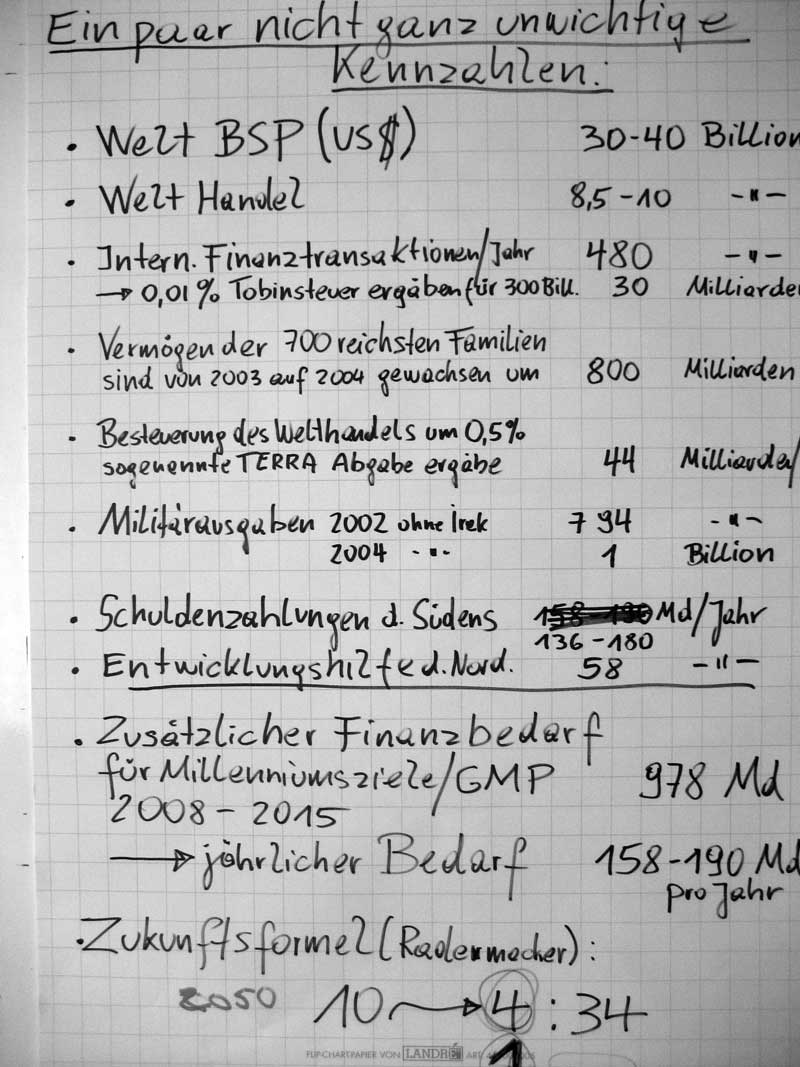 Ein paar nicht ganz unwichtige
Kennzahlen:
• Welt BSP (US$) 30-40 Billion
• Welt Handel 8,5-10 -"-
• Intern. Finanztransaktionen/Jahr 480 -"-
→ 0,01% Tobinsteuer ergäben für 300 Bill. 30 Milliarden
• Vermögen der 700 reichsten Familien
sind von 2003 auf 2004 gewachsen um 800 Milliarden
• Besteuerung des Welthandels um 0,5%
sogenennte TERRA Abgabe ergäbe 44 Milliarden
• Militärausgaben 2002 ohne Irak 794 -"-
2004 -"- 1 Billion
• Schuldenzahlungen d. Südens 158-190 Md/Jahr
136-180
• Entwicklungshilfe d. Nord. 58 -"-
• Zusätzlicher Finanzbedarf
für Millenniumsziele/GMP 978 Md
2008-2015
→ jährlicher Bedarf 158-190 Md
pro Jahr
• Zukunftsformel (Radermacher):
2050 10 → 4 : 34
1
FLIP-CHARTPAPIER VON LANDRÉ ART.